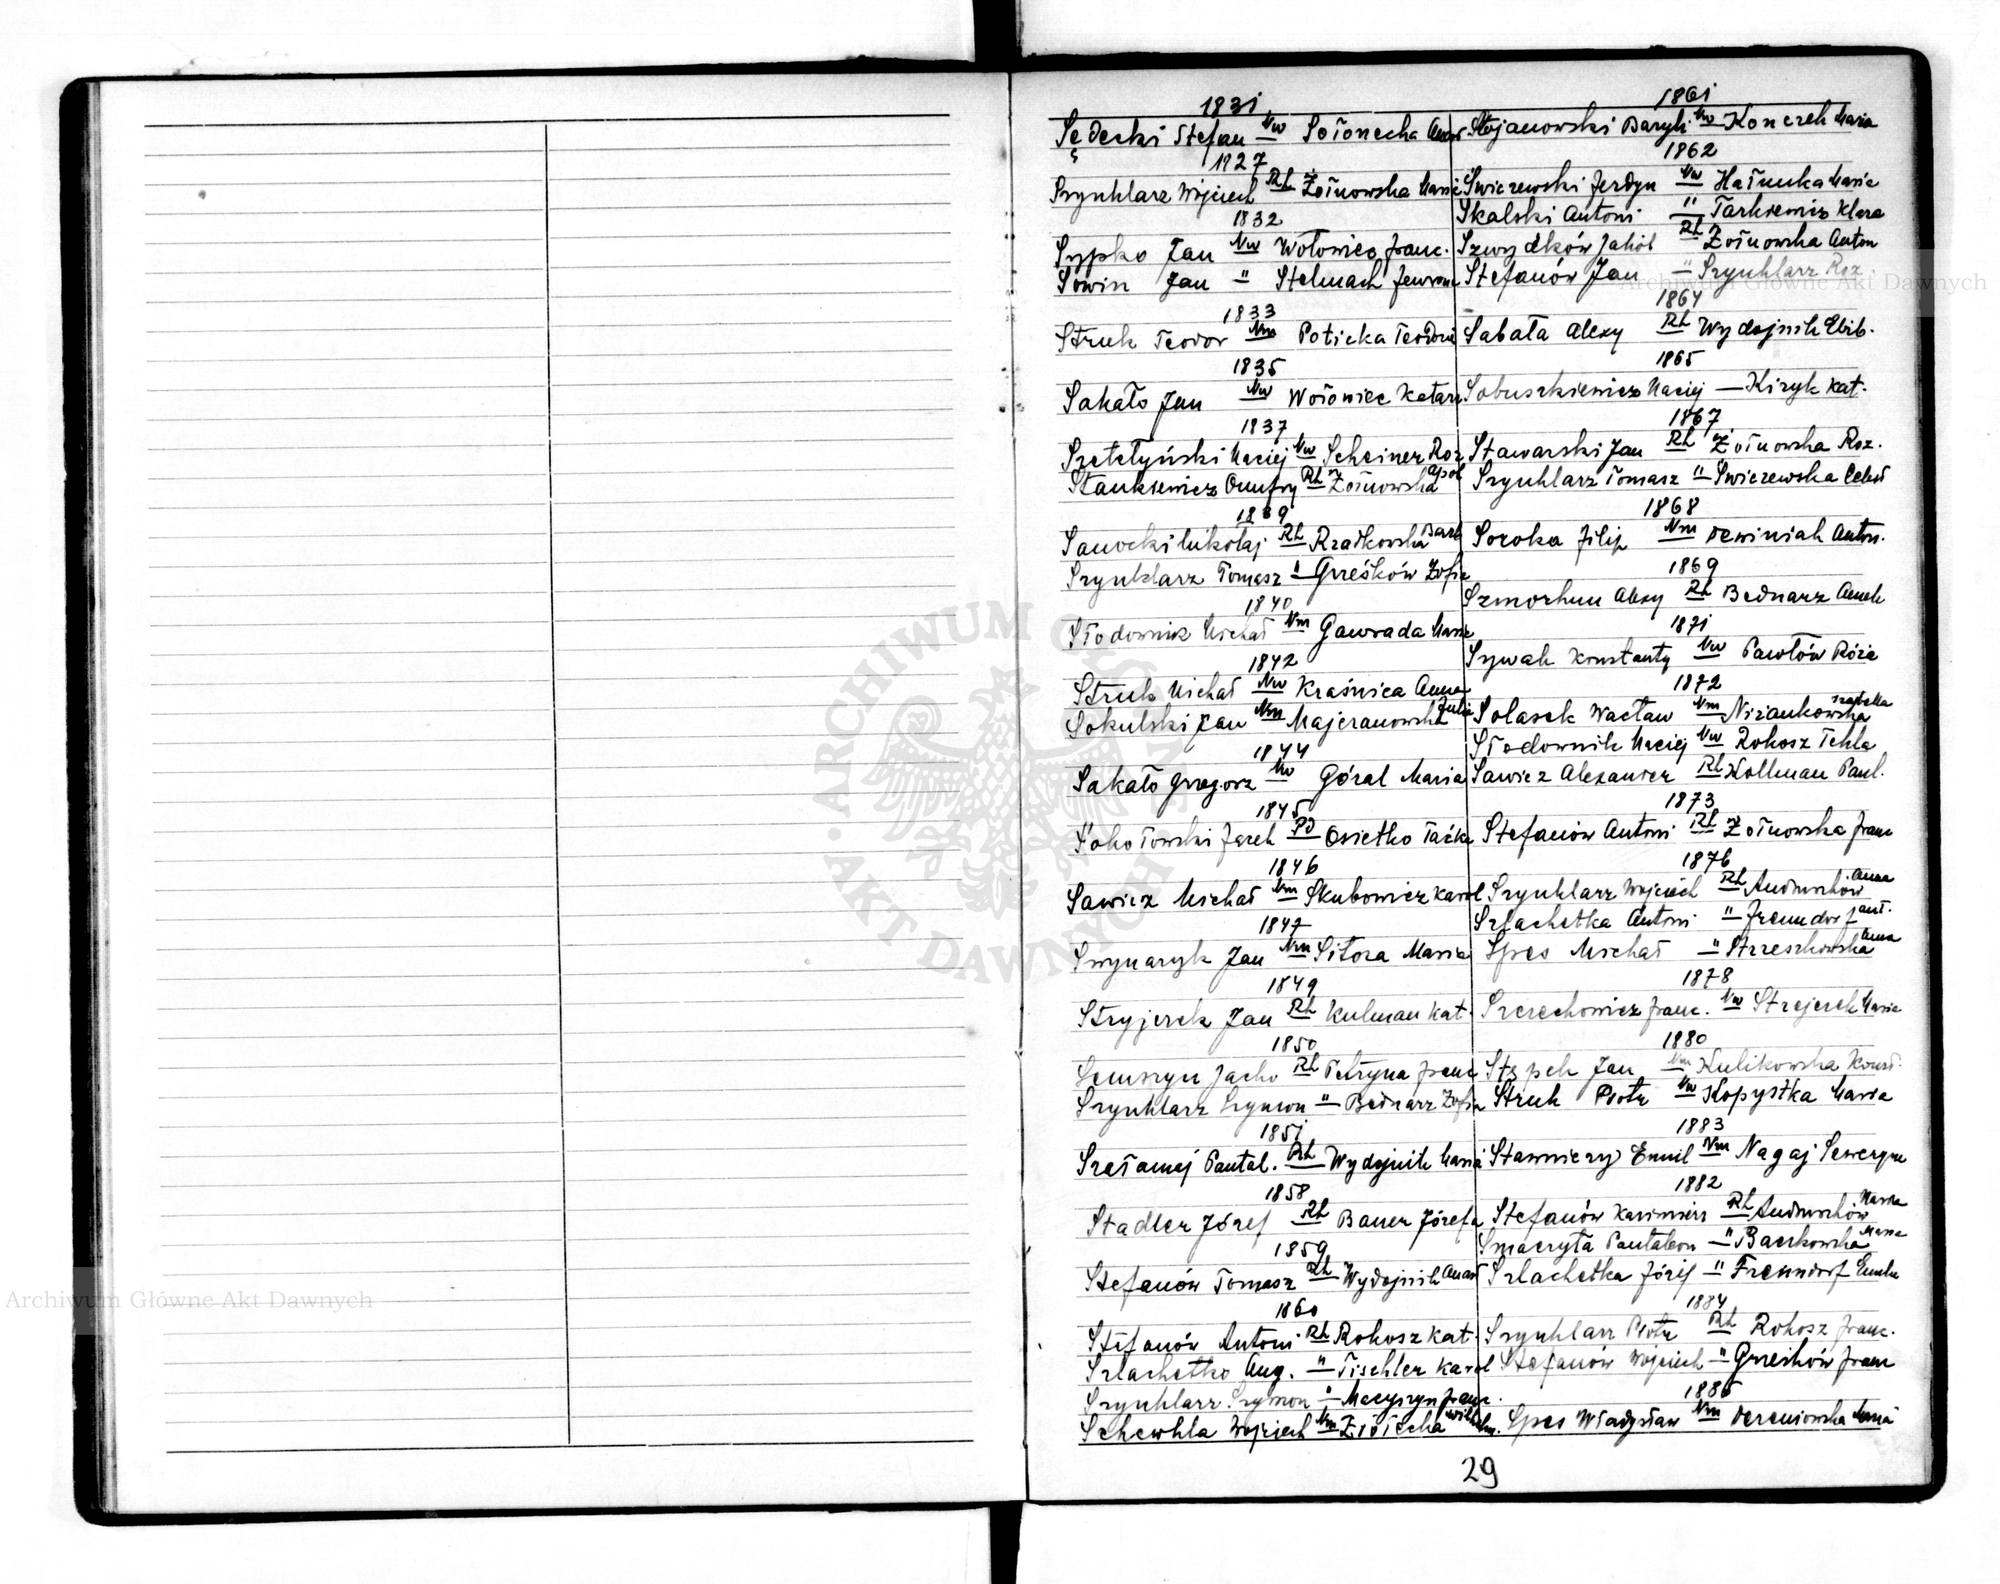 1831
Sędecki Stefan Nw Sołonecha
1927
Szynklarz Wojciech Rh Żołnowska Maria
1832
Sypko Jan Nw Wołowiec Franc.
Sowin Jan " Stelmach
1833
Struk Teodor Nm Poticka
1835
Sakało Jan Nw Wołowiec Katarz
1837
Maciej Nw Scheiner Roz
Stankiewicz Onufry Rh Żołnowska Apol
1839
Sanocki Mikołaj Rh Rzadkowska Barb
Szynklarz Tomasz " Grześków Zofia
1840
Słodownik Michał Nm Gawrada Maria
1842
Struk Michał Nw Kraśnica Anna
Sokulski Jan Nm Majeranowska Julia
1844
Sakało Grzegorz Nw Góral Maria
1845
PD Osietko
1846
Sawicz Michał Nm Skubowicz Karol
1847
Jan Nm Sitora Maria
1849
Stryjerek Jan Rh Kulman Kat.
1850
Jacko Rh Petryna Franc
Szynklarz Szymon " Bednarz Zofia
1851
Szełamej Pantal. Rh Wydojnik Maria
1858
Stadler Józef Rh Bauer Józefa
1859
Stefanów Tomasz Rh Wydojnik
1860
Stefanów Antoni Rh Rokosz Kat.
Szlachetko Aug. " Tischler Karol
Szynklarz Szymon " Macyszyn Franc.
Schewhla Wojciech Nm Wilhelm.
1861
Stojanowski Nw Konczek Maria
1862
Świczewski Nw Hałunka Maria
Skalski Antoni " Tarkiewicz Klara
Szwydków Jakób Rh Żołnowska Anton
Stefanów Jan " Szynklarz Roz.
1864
Sabała Alexy Rh Wydojnik
1865
Sobuszkiewicz Maciej — Kizyk Kat.
1867
Stawarski Jan Rh Żołnowska Roz.
Szynklarz Tomasz " Świczewska
1868
Soroka Filip Nm Anton.
1869
Szmorhun Alexy Rh Bednarz
1871
Sywak Konstanty Nw Pawłów Róża
1872
Solasek Wacław Nm Niżankowska Izabella
Słodownik Maciej Nw Rokosz Tekla
Sawicz Alexander Rh Kollman Paul.
1873
Stefanów Antoni Rh Żołnowska Franc
1876
Szynklarz Wojciech Rh Andruchów Anna
Szlachetka Antoni "
Spes Michał " Strzeszkowska Anna
1878
Szczechowicz Franc. Nw Strejerek Maria
1880
Stępek Jan Nm Kulikowska
Struk Piotr Nw Kopystka Maria
1883
Stawniczy Emil Nm Nagaj Seweryn
1882
Stefanów Kazimierz Rh Andruchów Maria
Smaczyła Pantaleon " Baczkowska Maria
Szlachetka Józef "
1884
Szynklarz Piotr Rh Rokosz Franc.
Stefanów Wojciech " Grześków Franc
1885
Spes Władysław Nm
29
Archiwum Główne Akt Dawnych
Archiwum Główne Akt Dawnych
ARCHIWUM GŁÓWNE AKT DAWNYCH